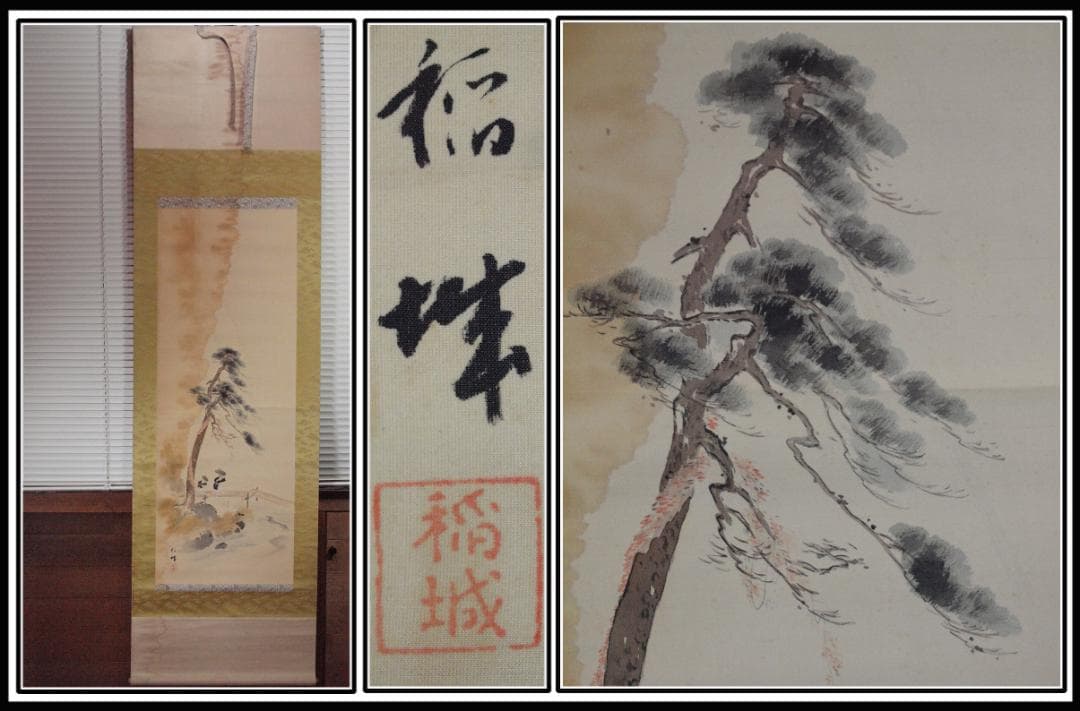 稲
城
稲
城